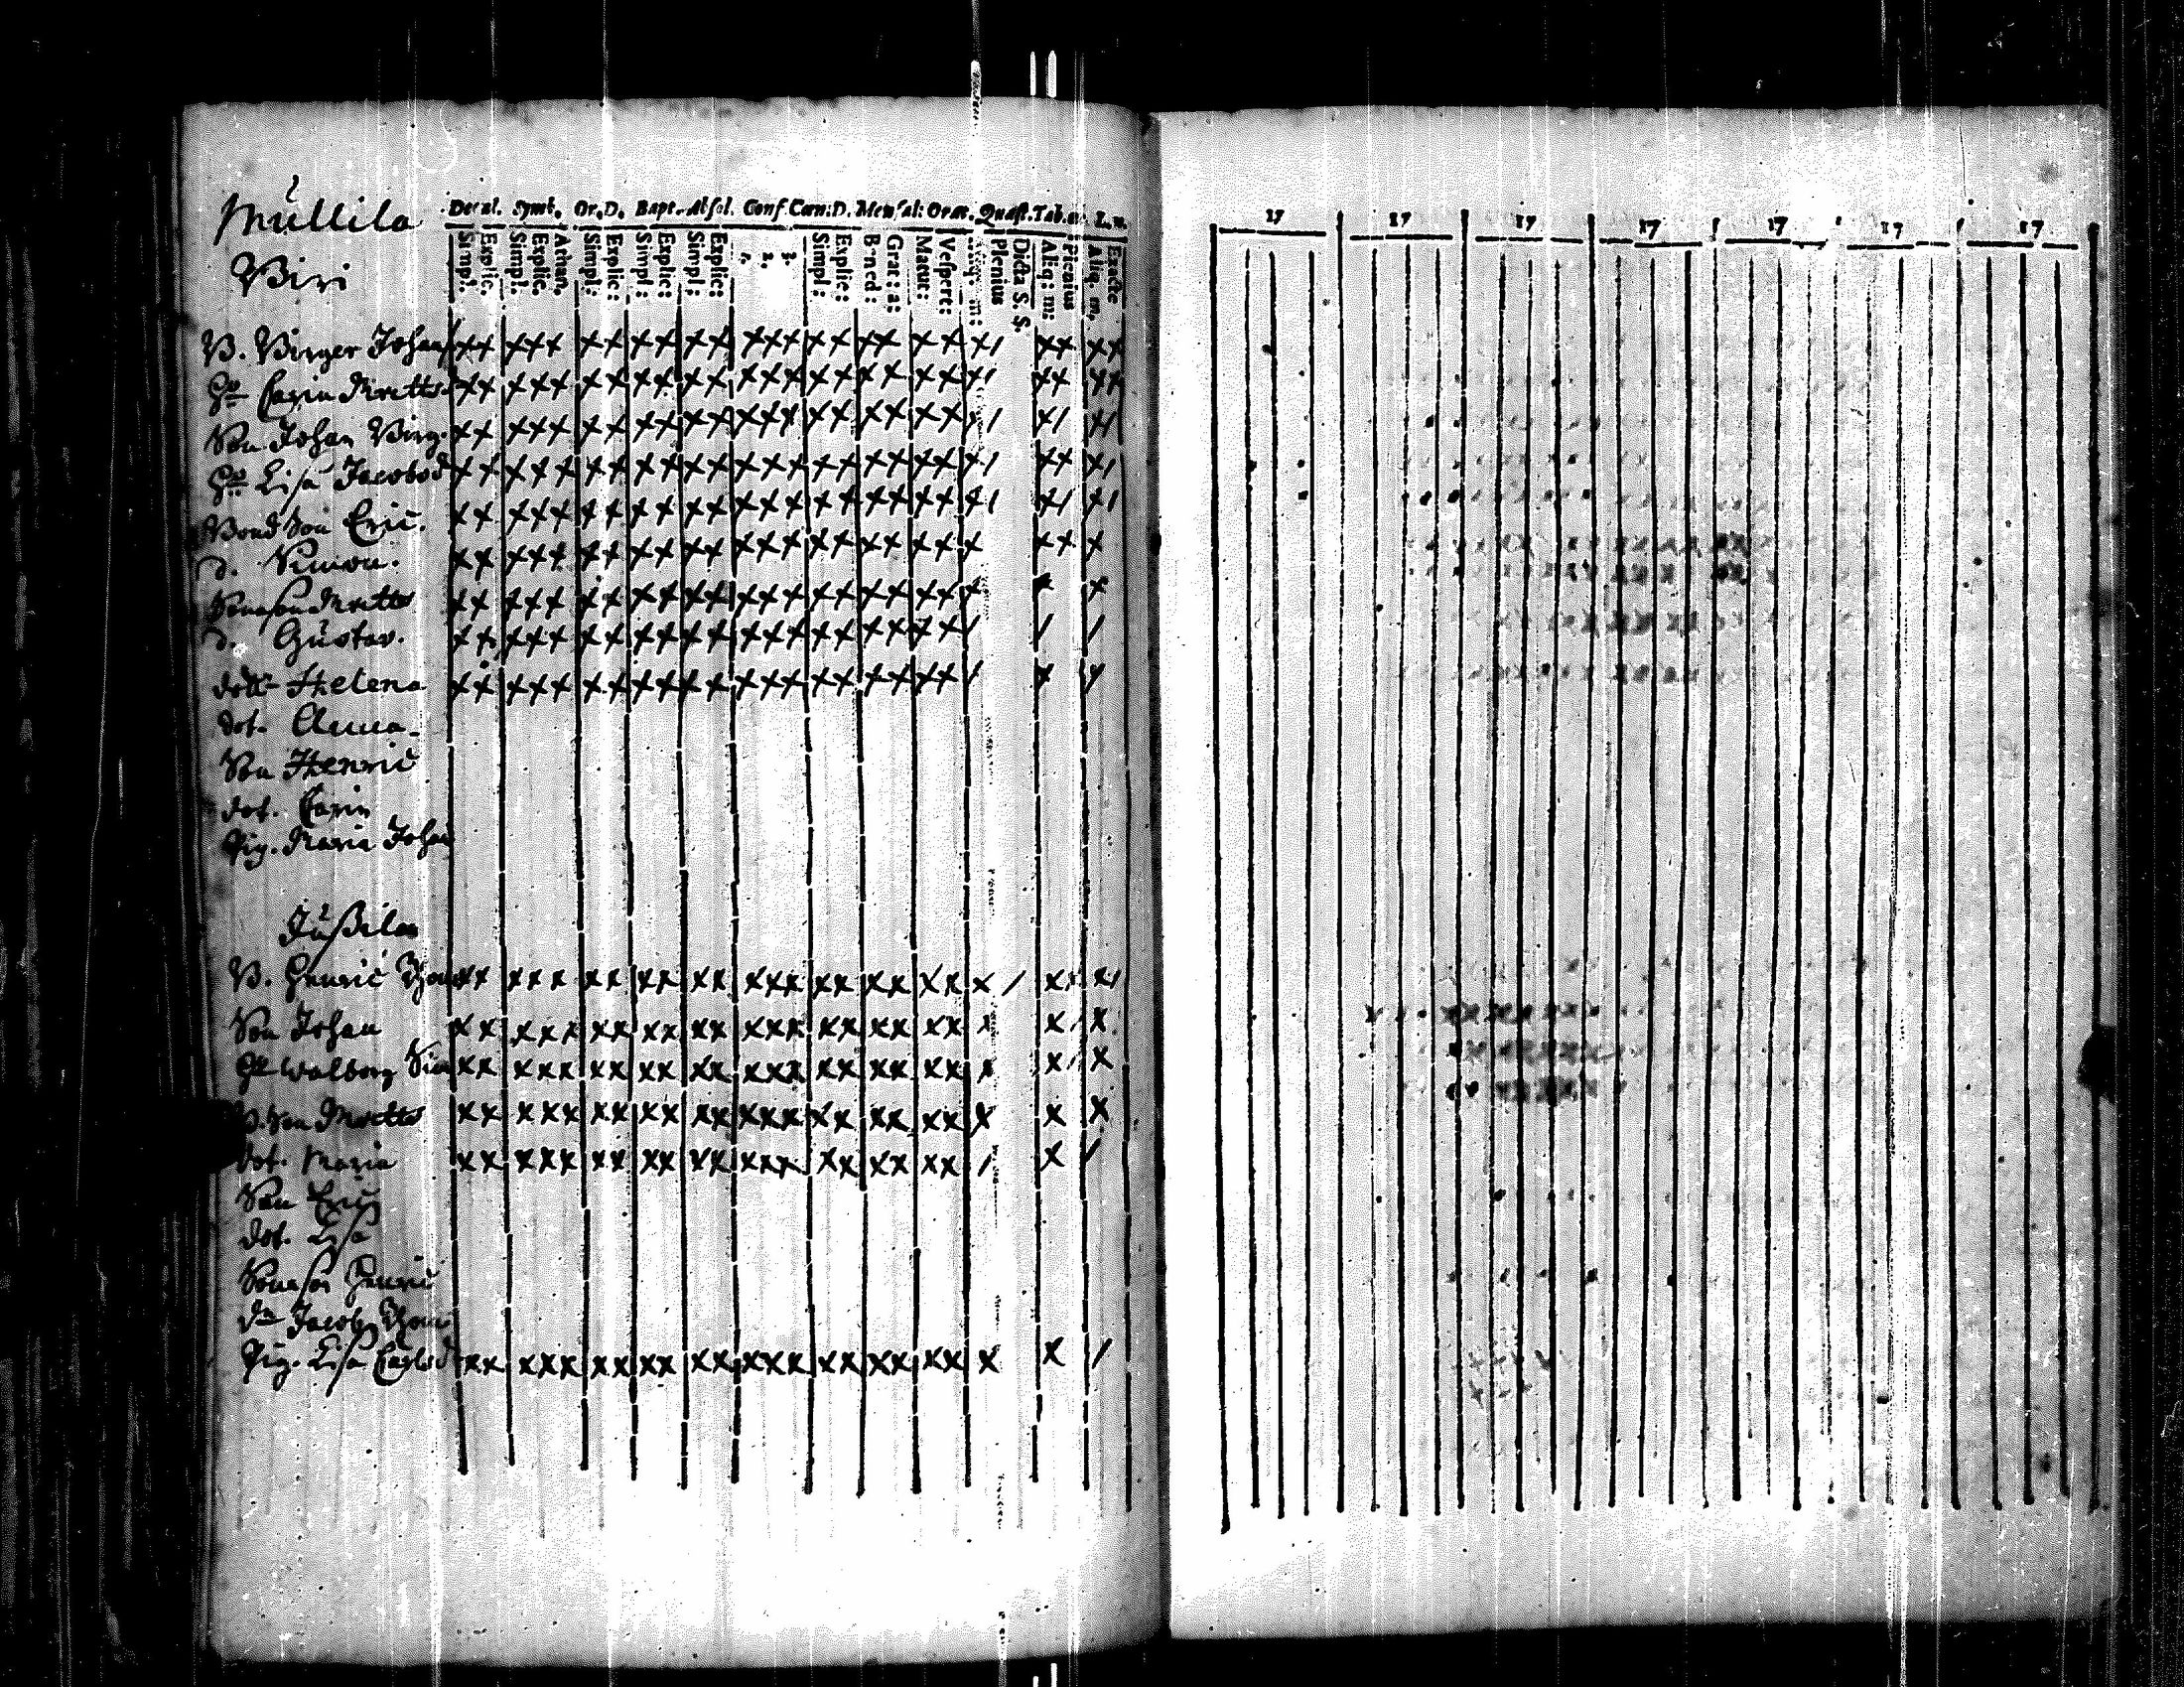 Mullila
Viri
Decal. Symb. Or.D. Bapt. Absol. Conf. Cœn:D. Mensal: Orat. Quæst. Tab. œ. L. n.
Simpl. Explic. Simpl. Explic. Athan. Simpl: Explic: Simpl: Explic: Simpl: Explic: 1. 2. 3. Simpl: Explic: Bened: Grat: a: Matut: Vespere: m: Plenius Dicta S. S. Aliq: m: Plenius Aliq. m, Exacte
B. Birger Johan
Hu Carin Mattsd
Son Johan Birg.
Hu Lisa Jacobsd
Bond Son Eric.
d. Simon.
Sonason Matts
d. Gustav.
dottr Helena
dot. Anna
Son Henric
dot. Carin
Pig. Maria Johan
Jussila
B. Henric Thom
Son Johan
Hu Walborg Sim
B. Son Matts
dot. Maria
Son Eric
dot. Lisa
Sonason Henric
do Jacob Thom
Pig. Lisa Carlsd
17 17 17 17 17 17 17